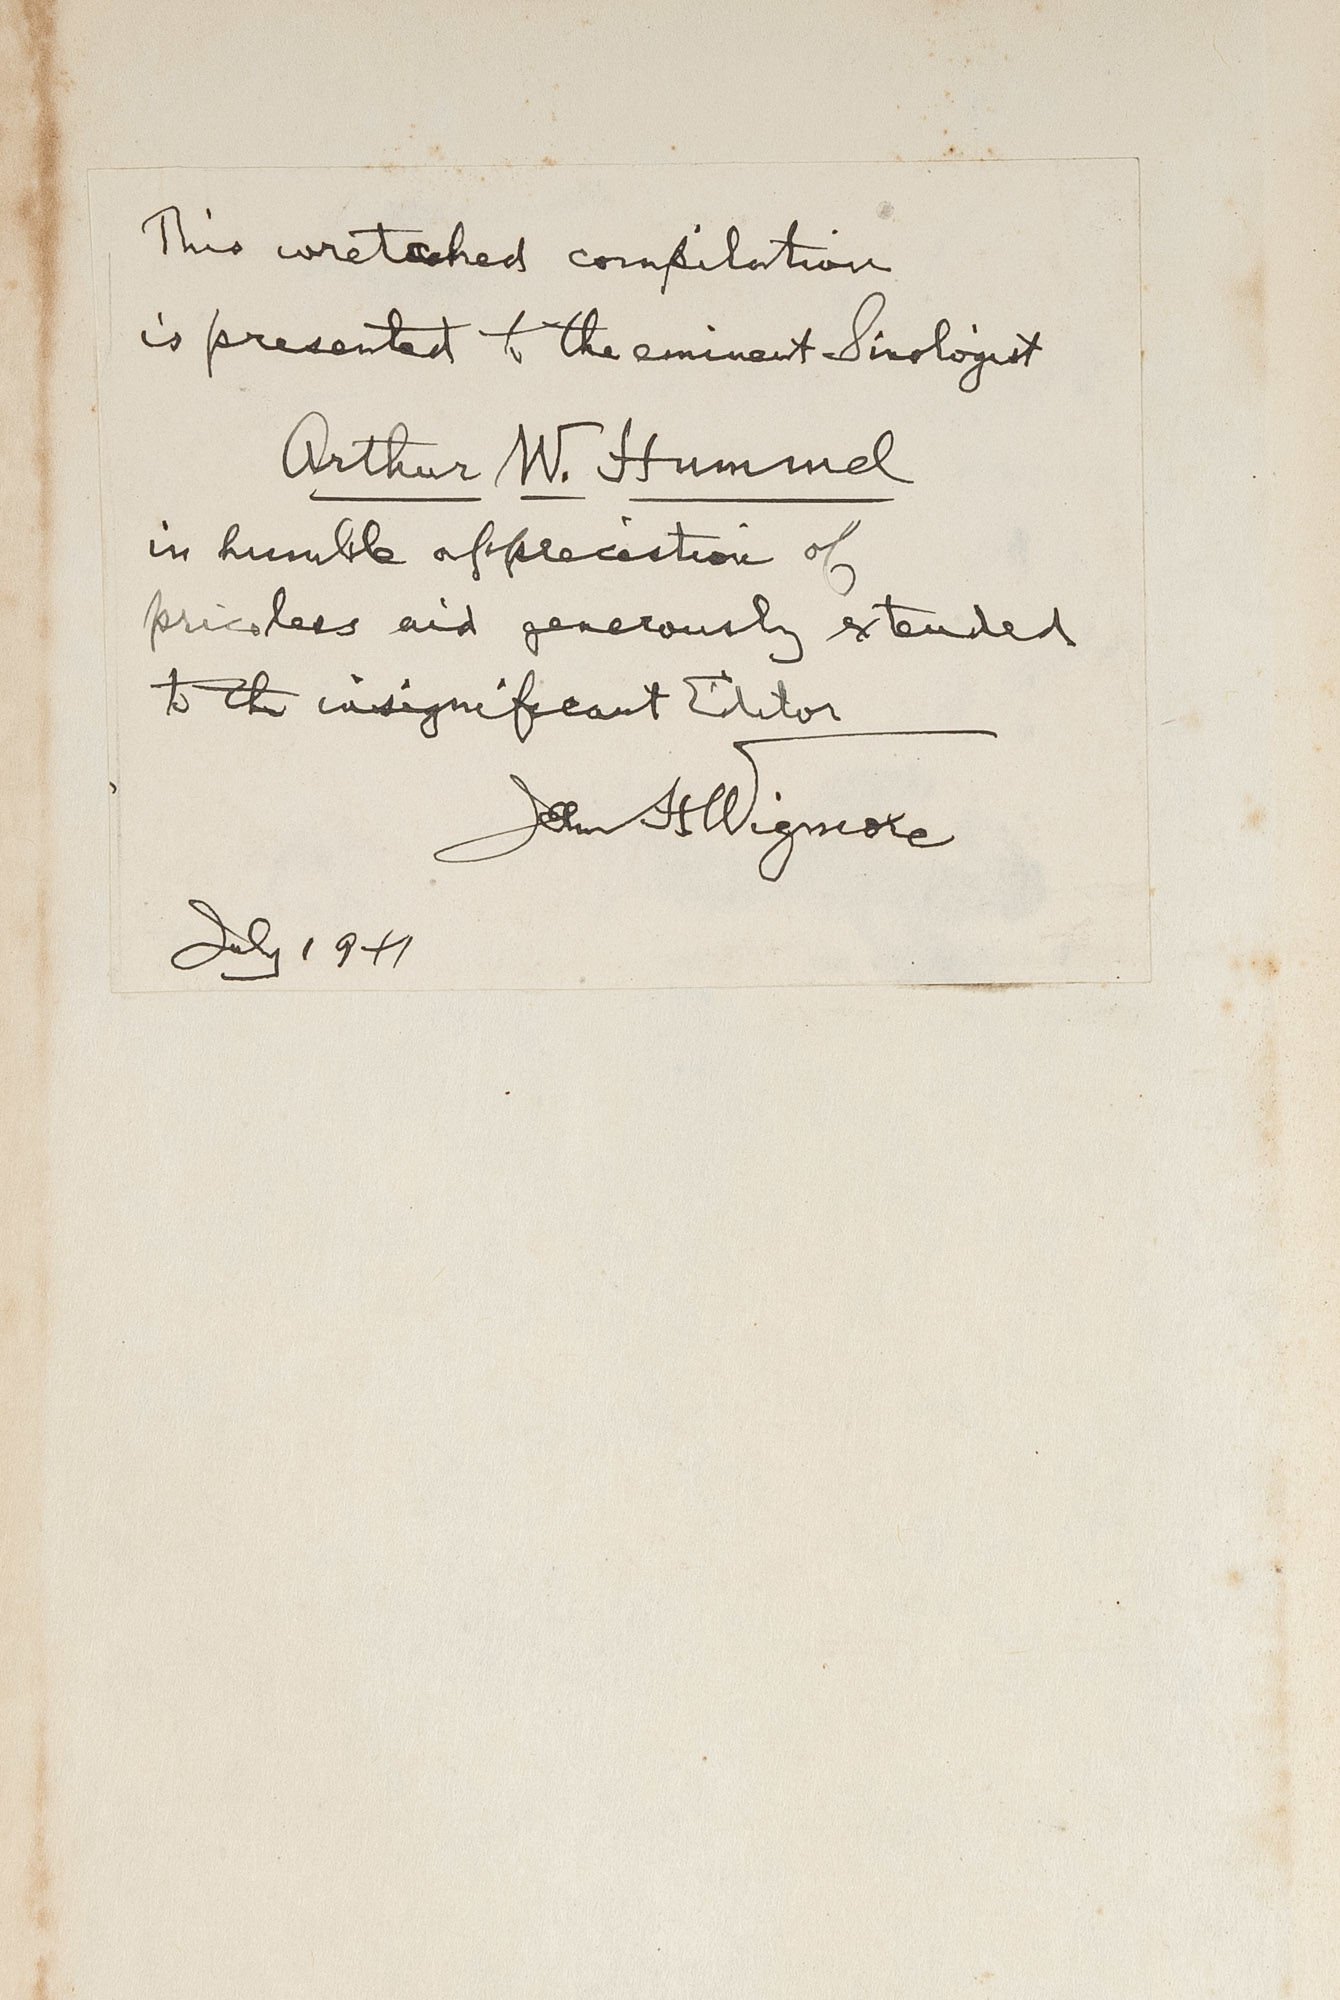 This wretched compilation
is presented to the eminent Sinologist
Arthur W. Hummel
in humble appreciation of
priceless aid generously extended
to the insignificant Editor
John H Wigmore
July 1941